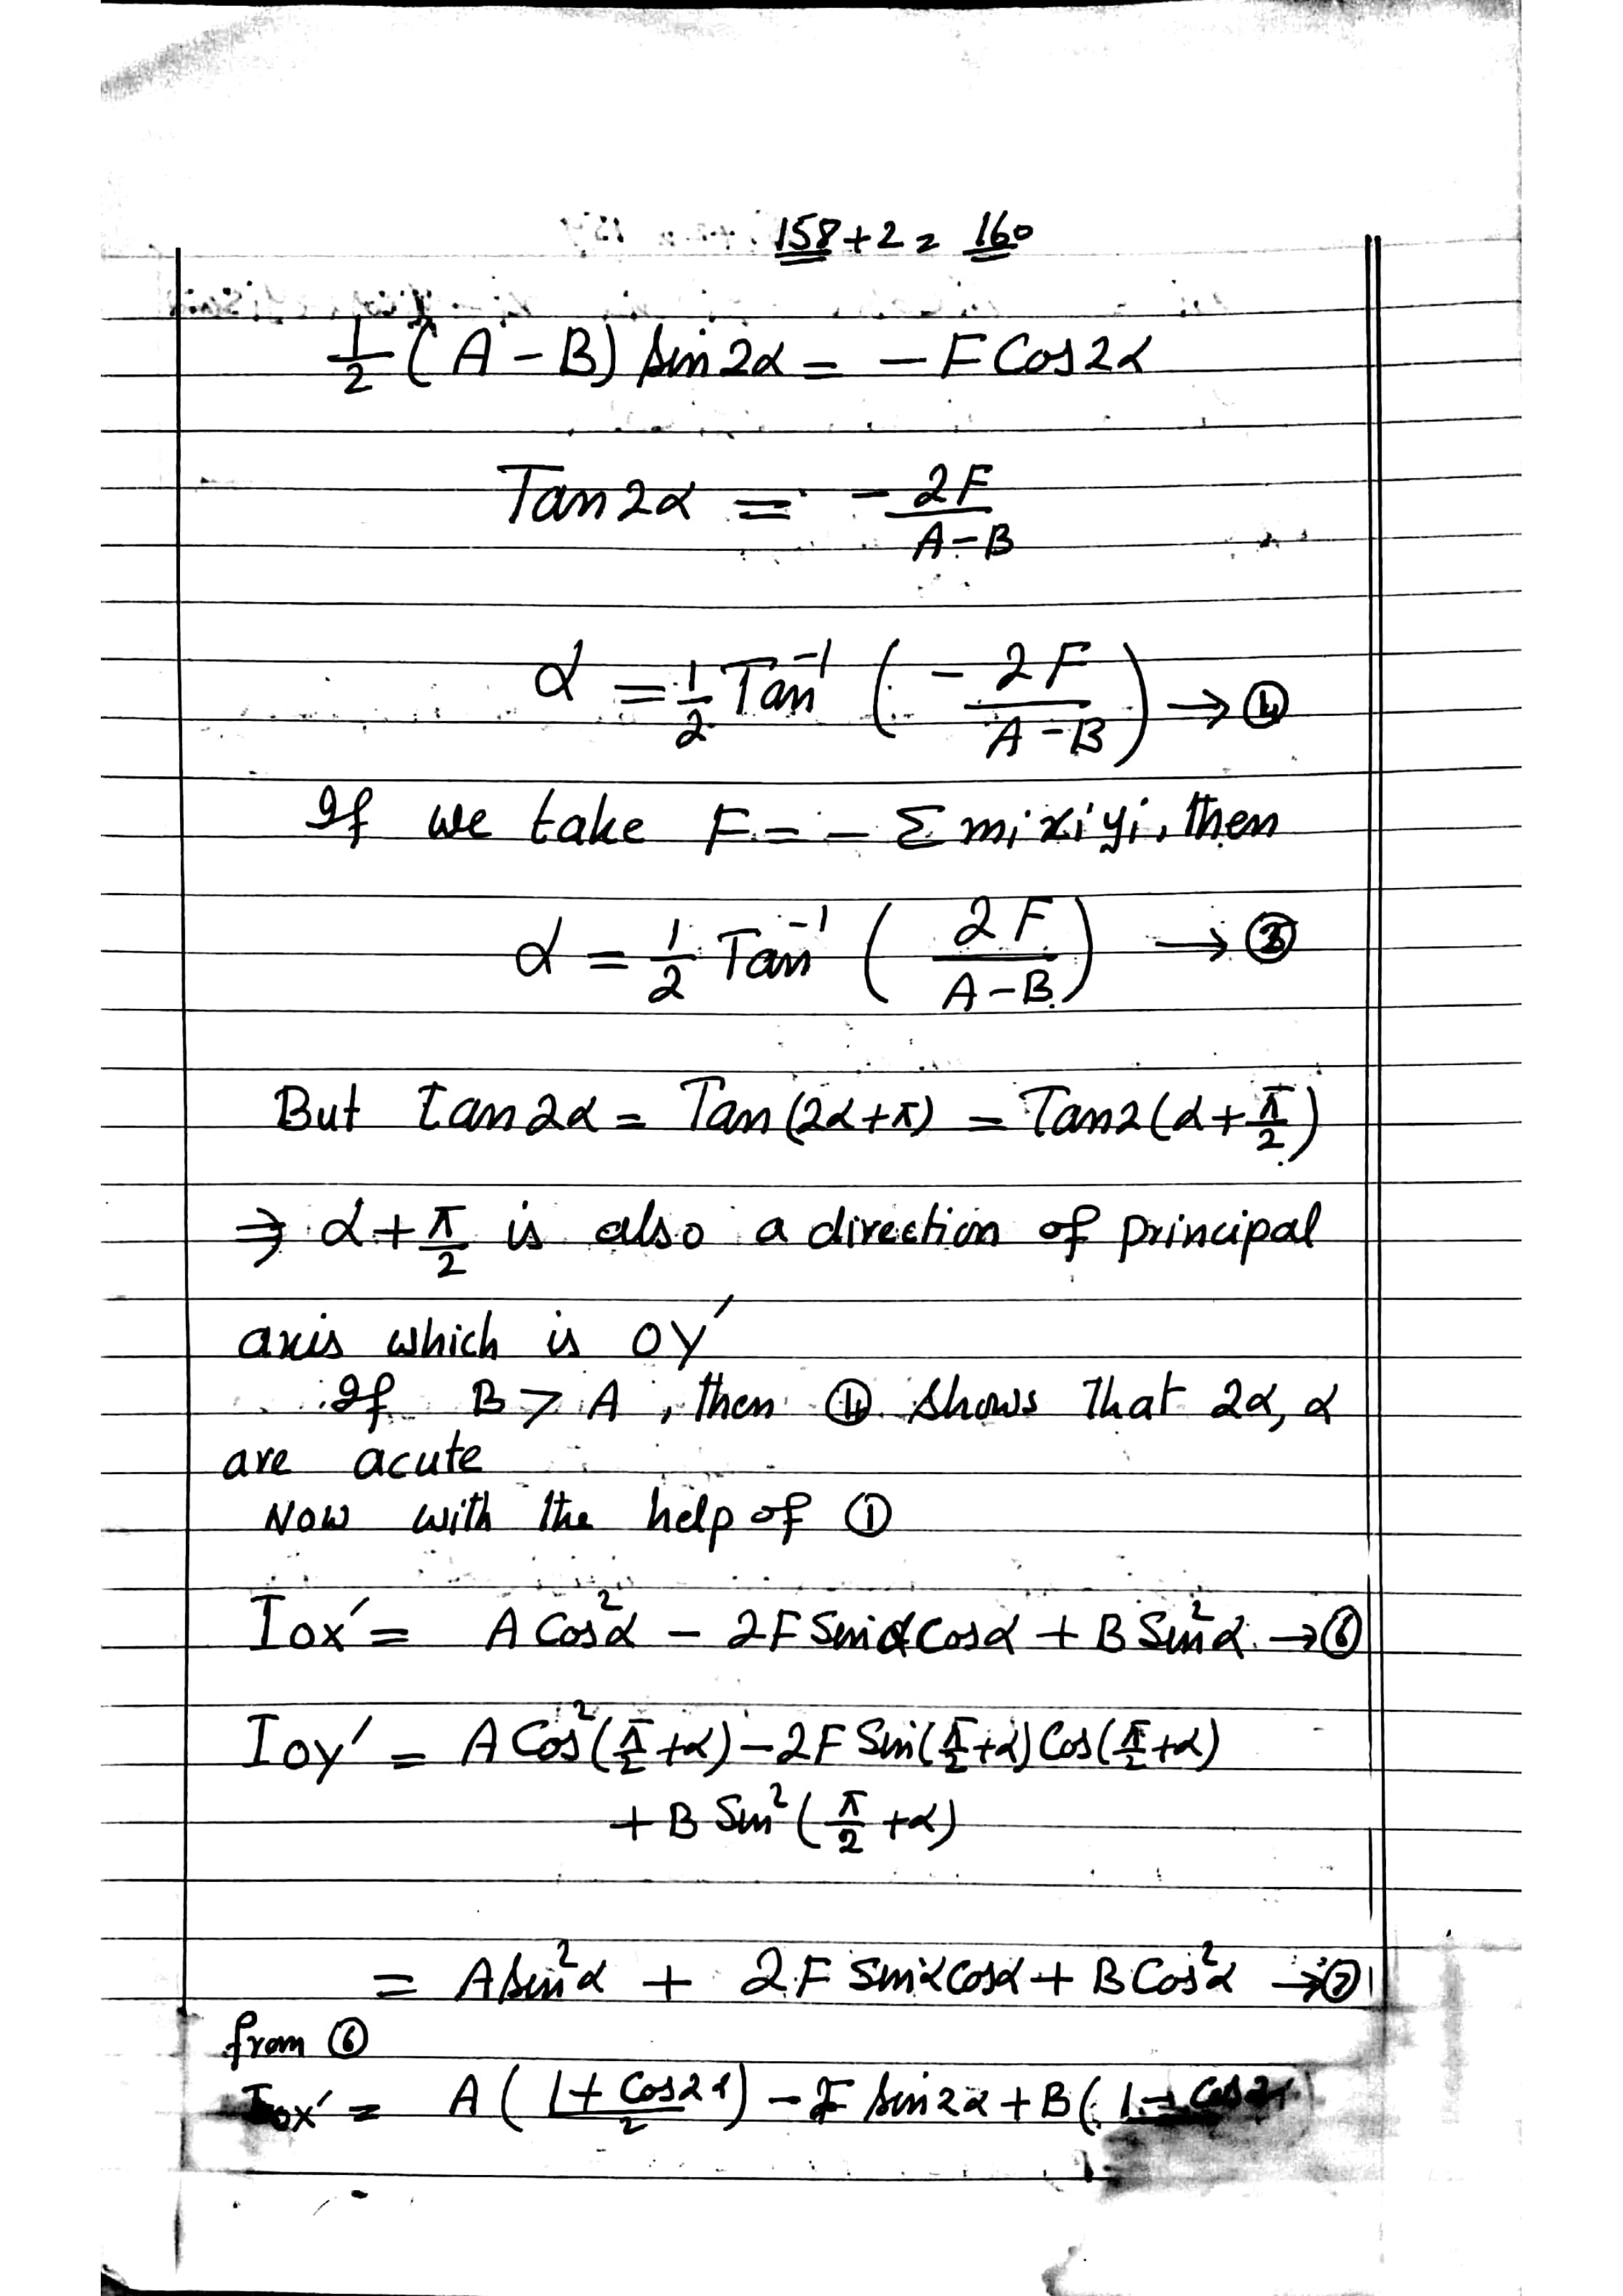 158+2 = 160
1/2 (A - B) sin 2α = - F Cos 2α
Tan 2α = - 2F/(A-B)
α = 1/2 Tan⁻¹ ( - 2F/(A-B) ) → ④
If we take F = - Σ mi xi yi, then
α = 1/2 Tan⁻¹ ( 2F/(A-B) ) →
But tan 2α = Tan (2α+π) = Tan 2(α + π/2)
⇒ α + π/2 is also a direction of principal
axis which is OY′
If B > A, then ④ shows that 2α, α
are acute
Now with the help of ①
Iox′ = A Cos²α - 2F Sinα Cosα + B Sin²α → ⑥
Ioy′ = A Cos²(π/2 +α) - 2F Sin(π/2 +α) Cos(π/2 +α)
+ B Sin² (π/2 +α)
= A sin²α + 2F Sinα Cosα + B Cos²α → ⑦
from ⑥
Iox′ = A ( (1+ Cos2α)/2 ) - F sin 2α + B ( 1 - Cos2α